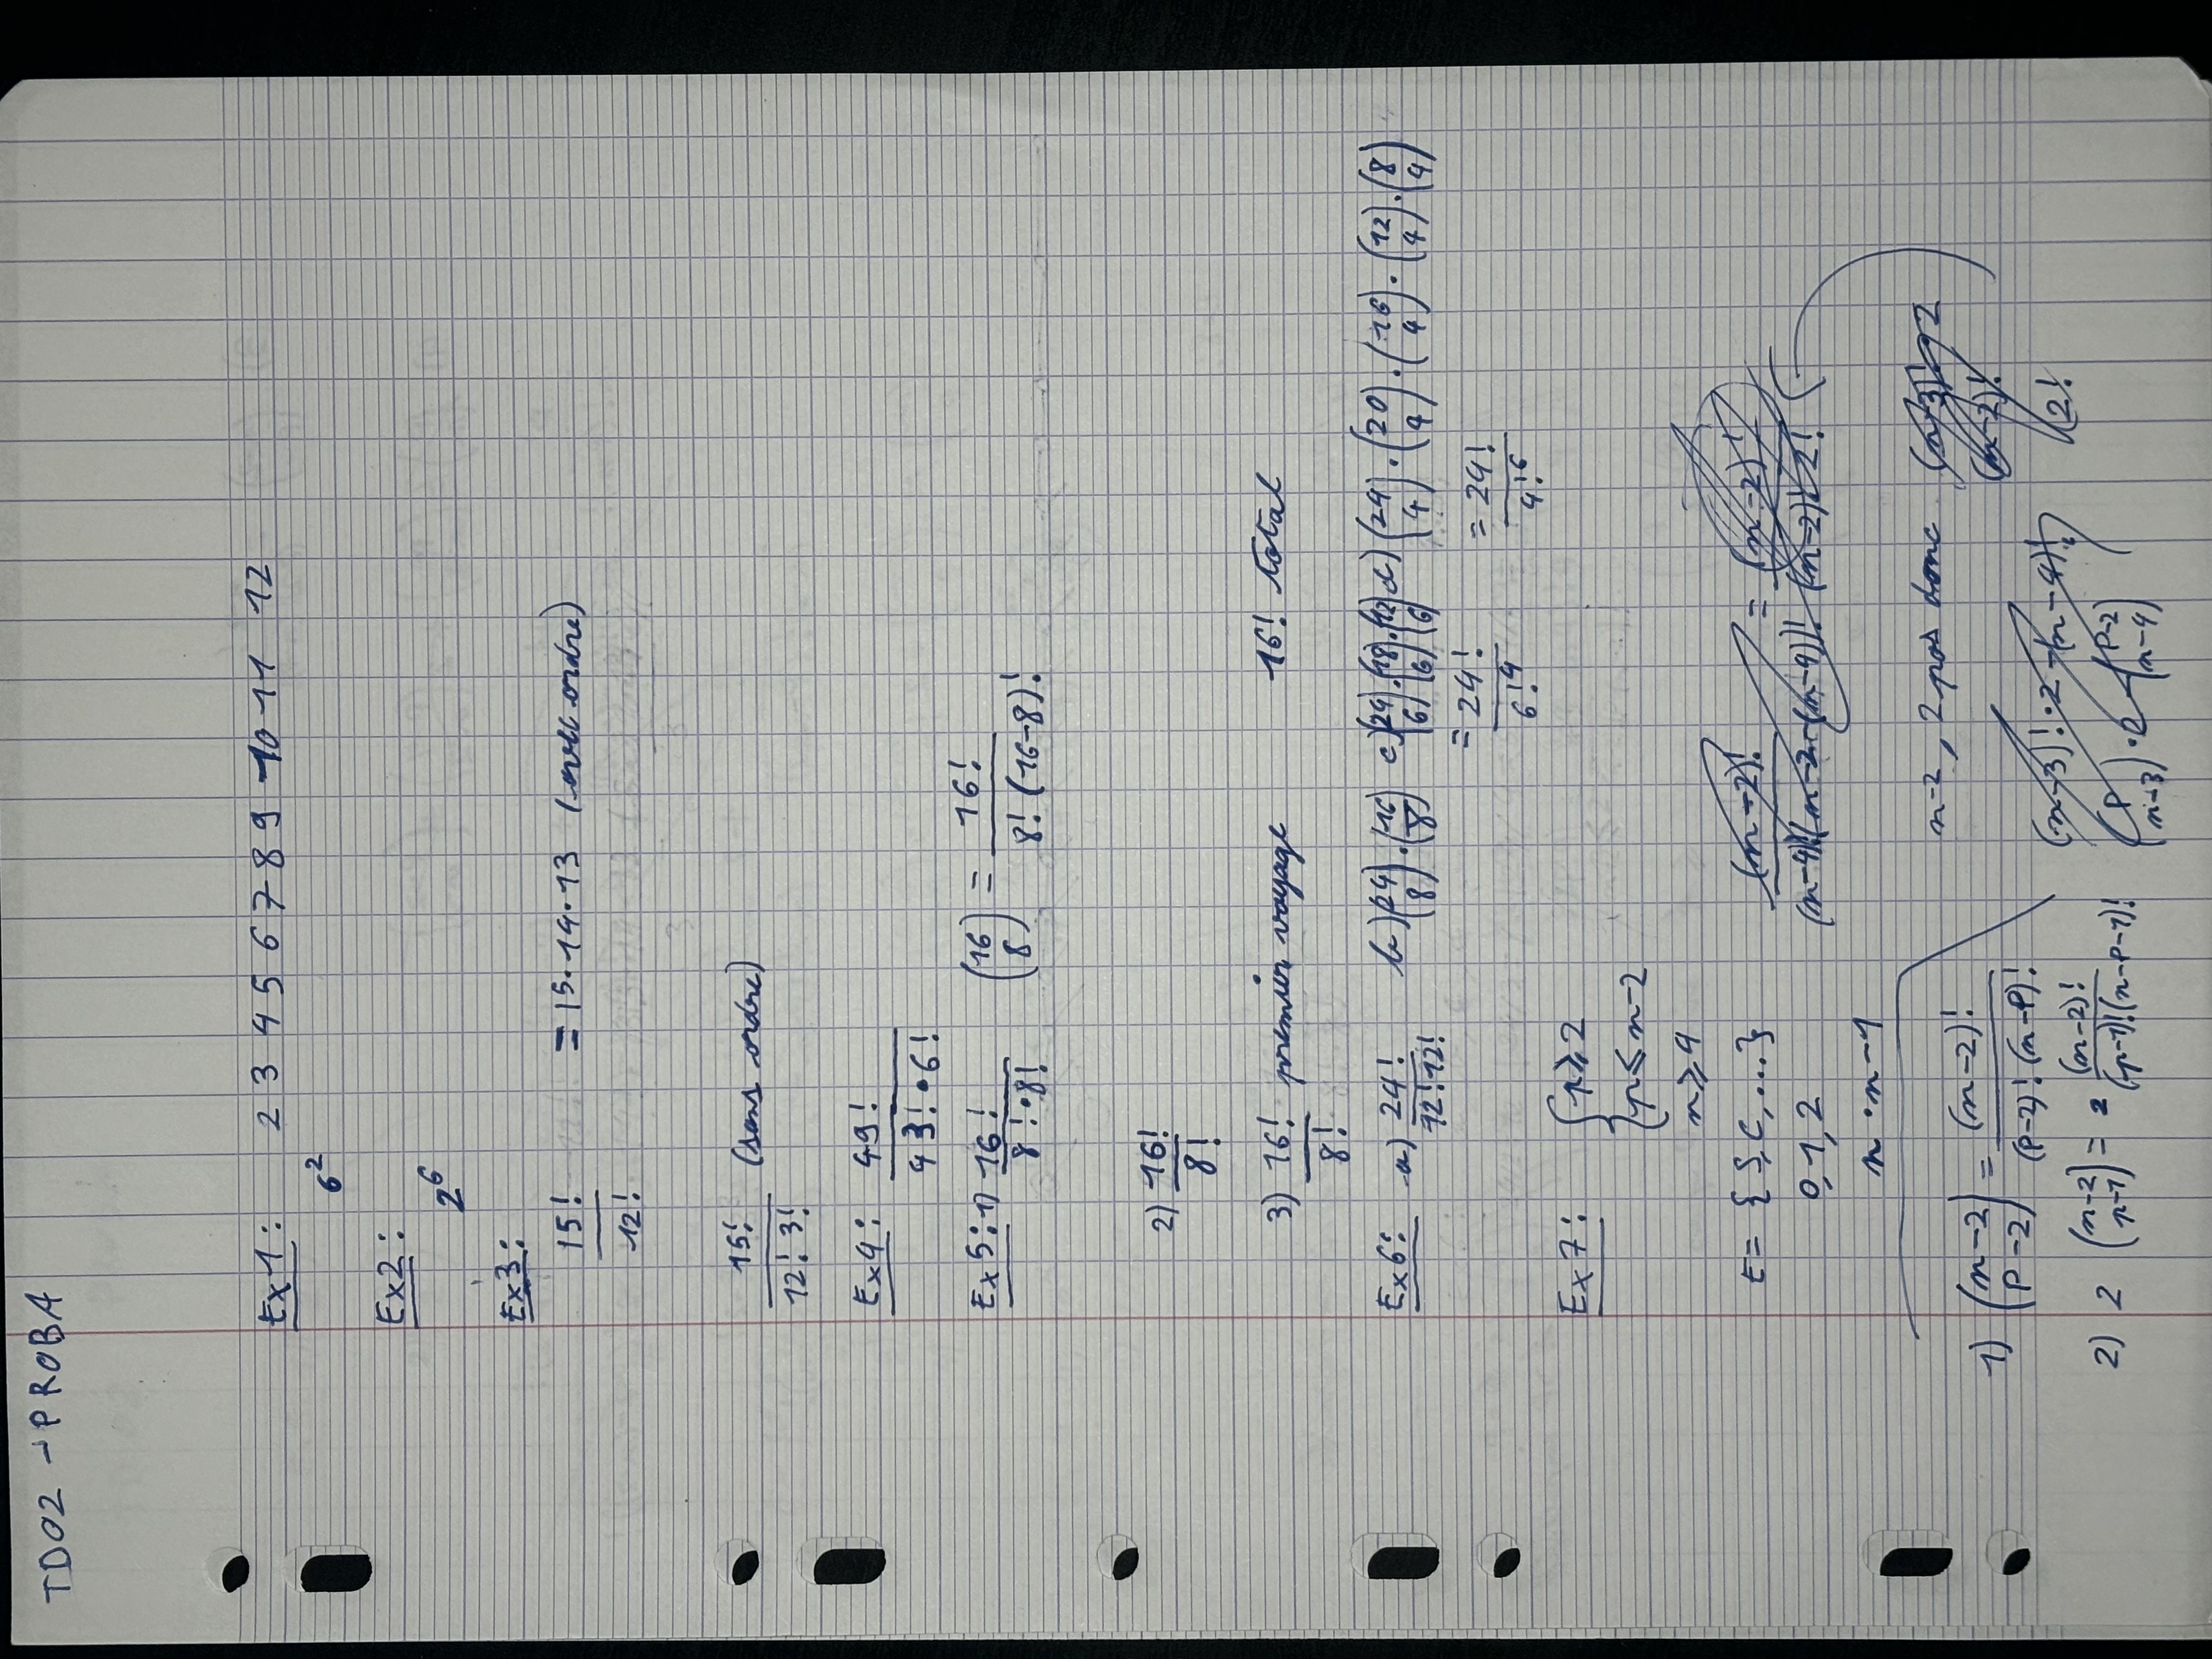 TD02 - PROBA
Ex1: 2 3 4 5 6 7 8 9 10 11 12
6²
Ex2:
2⁶
Ex3:
15!/12! = 15·14·13 (avec ordre)
15!/(12! 3!) (sans ordre)
Ex4: 49!/(43!·6!)
Ex5: 1) 16!/(8!·8!) (16 8) = 16!/(8! (16-8)!)
2) 16!/8!
3) 16!/8! premier voyage 16! total
Ex6: a) 24!/(12!12!) b) (24 8)·(16 8) c) (24 6)·(18 6)·(12 6) d) (24 4)·(20 4)·(16 4)·(12 4)·(8 4)
= 24!/6!⁴ = 24!/4!⁶
Ex7: { p⩾2
p⩽n-2
n⩾4
E= {S,C,...} (n-2)!/((n-4)!(n-2-(n-4))!) = (n-2)!/((n-2)! 2!)
0,1,2
n·n-1
n-2, 2 pos donc (n-3)!·2
(n-2)!
2!
1) (n-2 p-2) = (n-2)!/((p-2)! (n-p)!)
(n-3)!·2-(n-4)!
2) 2 (n-2 p-1) = 2 (n-2)!/((p-1)!(n-p-1)!)
(p n-3)·2-(p-2 n-4)